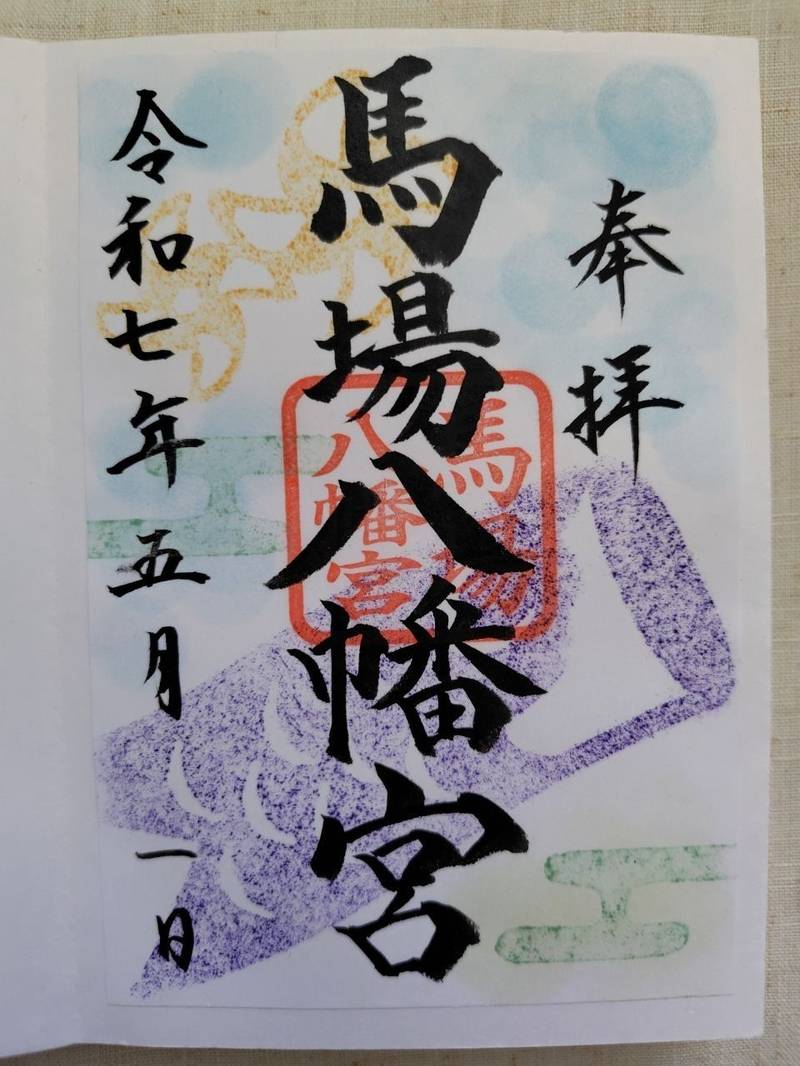 奉拝
馬場八幡宮
馬場
八幡宮
令和七年五月一日